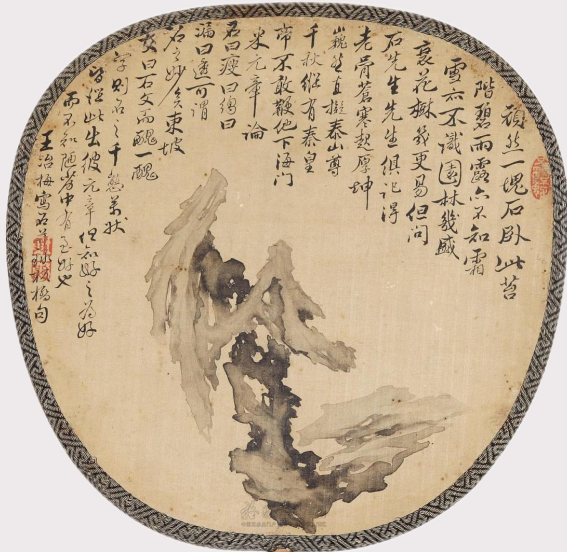 頑然一塊石卧此苔
階碧雨露亦不知霜
雪亦不識園林幾盛
衰花樹幾更易但問
石先生先生俱記得
老骨蒼寒起厚坤
巍然直擬泰山尊
千秋縱有秦皇
帝不敢鞭他下海門
米元章論
石曰瘦曰縐曰
漏曰透可謂
石之妙矣東坡
又曰石文而醜一醜
字則石之千態萬狀
皆從此出彼元章但知好之為好
而不知陋劣中有至好也
王冶梅寫石並錄板橋句